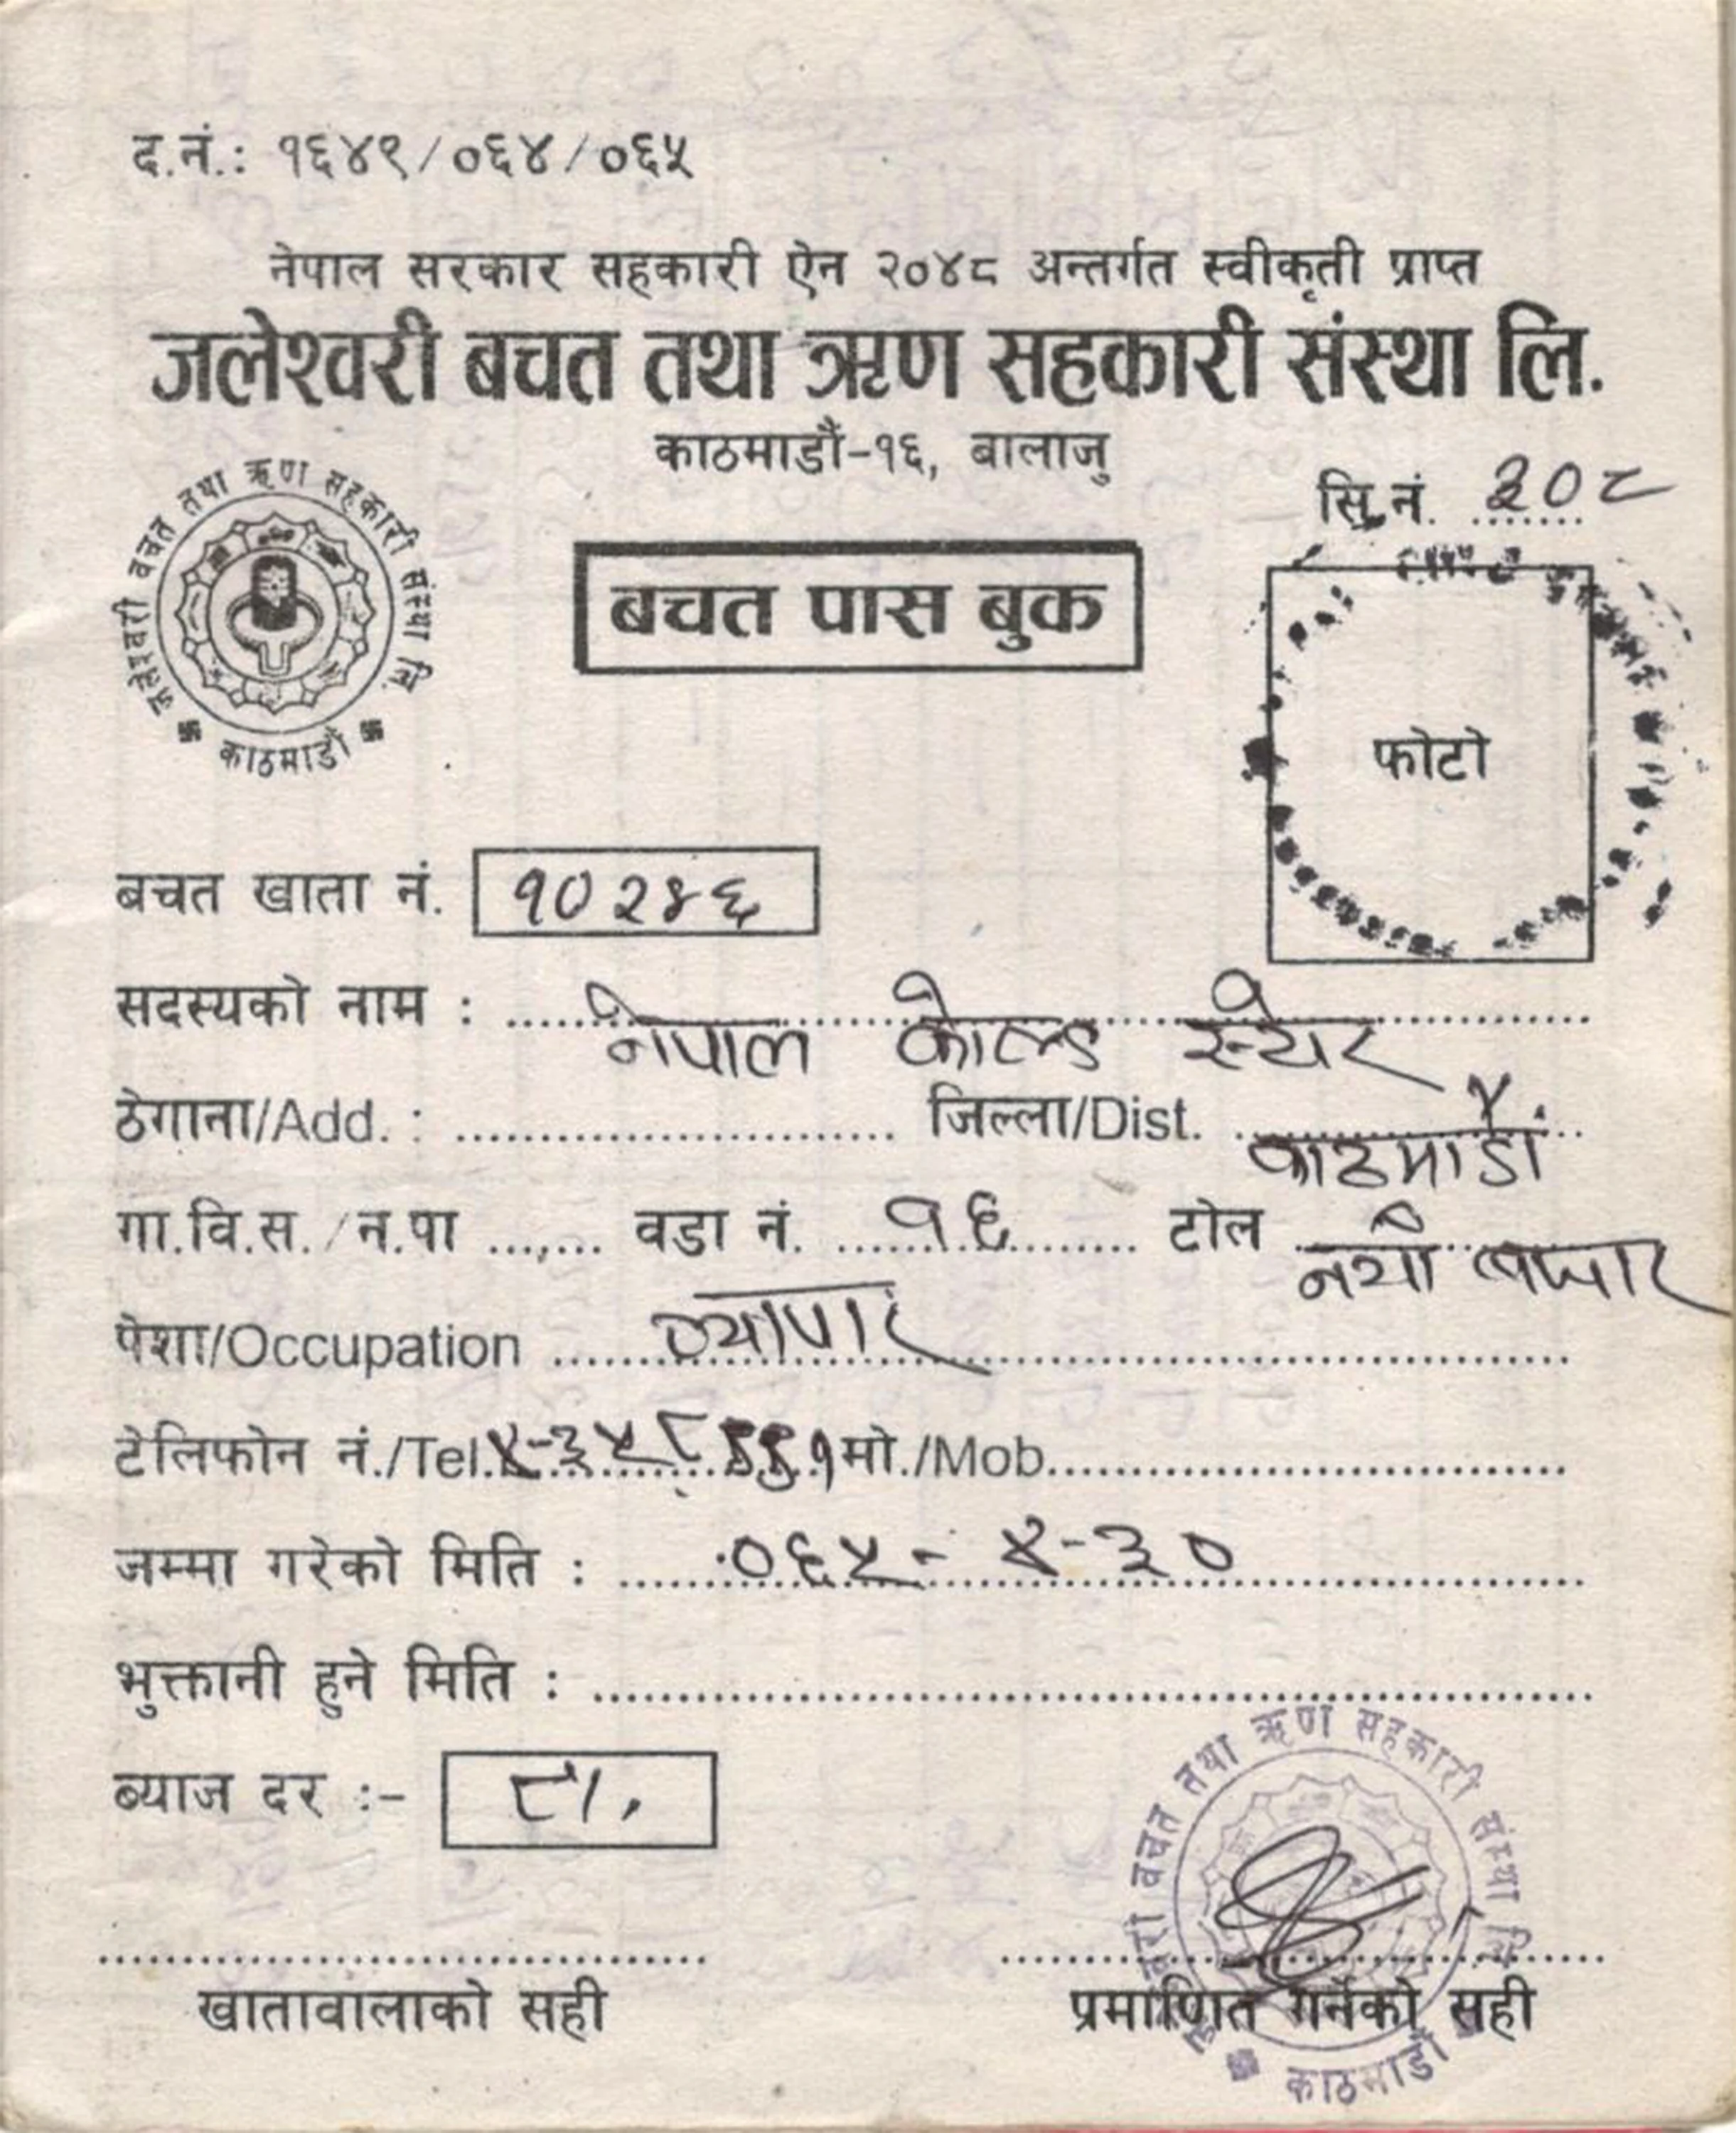 द.नं.: १६४९/०६४/०६५
नेपाल सरकार सहकारी ऐन २०४८ अन्तर्गत स्वीकृती प्राप्त
जलेश्वरी बचत तथा ऋण सहकारी संस्था लि.
काठमाडौं-१६, बालाजु
सि.नं. ३०८
जलेश्वरी बचत तथा ऋण सहकारी संस्था लि.
काठमाडौं
बचत पास बुक
फोटो
बचत खाता नं. १०२४६
सदस्यको नाम : नेपाल कोल्ड स्टोर
ठेगाना/Add. : जिल्ला/Dist. काठमाडौं
गा.वि.स./न.पा ....... वडा नं. १६ टोल नयाँ बजार
पेशा/Occupation व्यापार
टेलिफोन नं./Tel. मो./Mob.
जम्मा गरेको मिति : ०६५-४-३०
भुक्तानी हुने मिति :
ब्याज दर :-
बचत तथा ऋण सहकारी संस्था
खातावालाको सही प्रमाणित गर्नेको सही
काठमाडौं